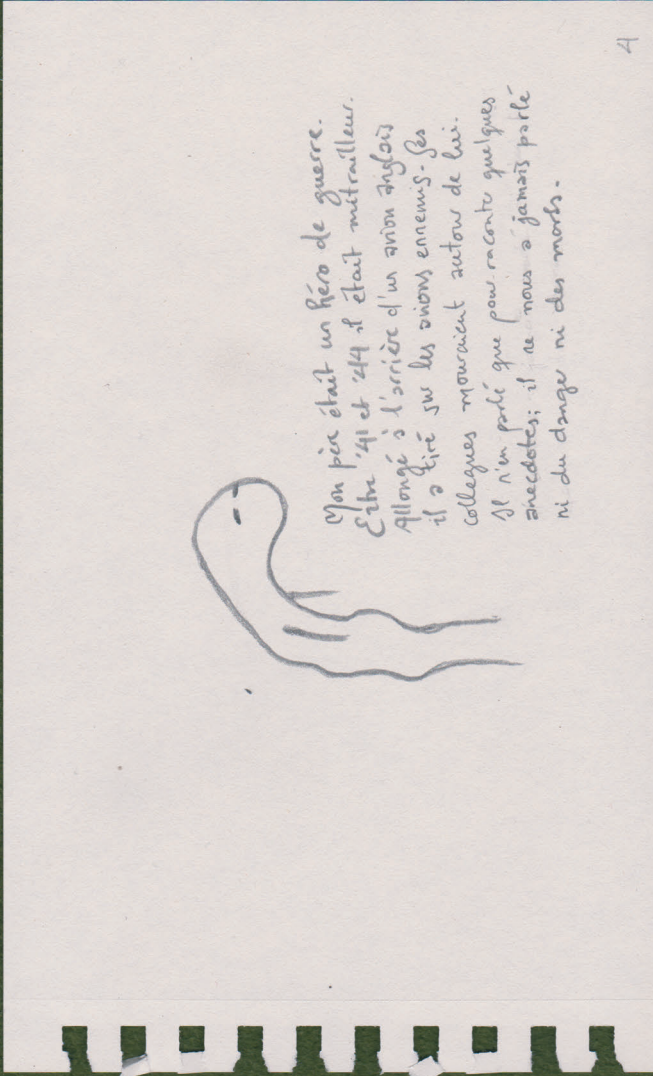 4
Mon père était un héro de guerre.
Entre '41 et '44 il était mitrailleur.
Allongé à l'arrière d'un avion anglais
il a tiré sur les avions ennemis. Ses
collegues mouraient autour de lui.
Il n'en parlé que pour raconte quelques
anecdotes; il ne nous a jamais parlé
ni du dange ni des morts.